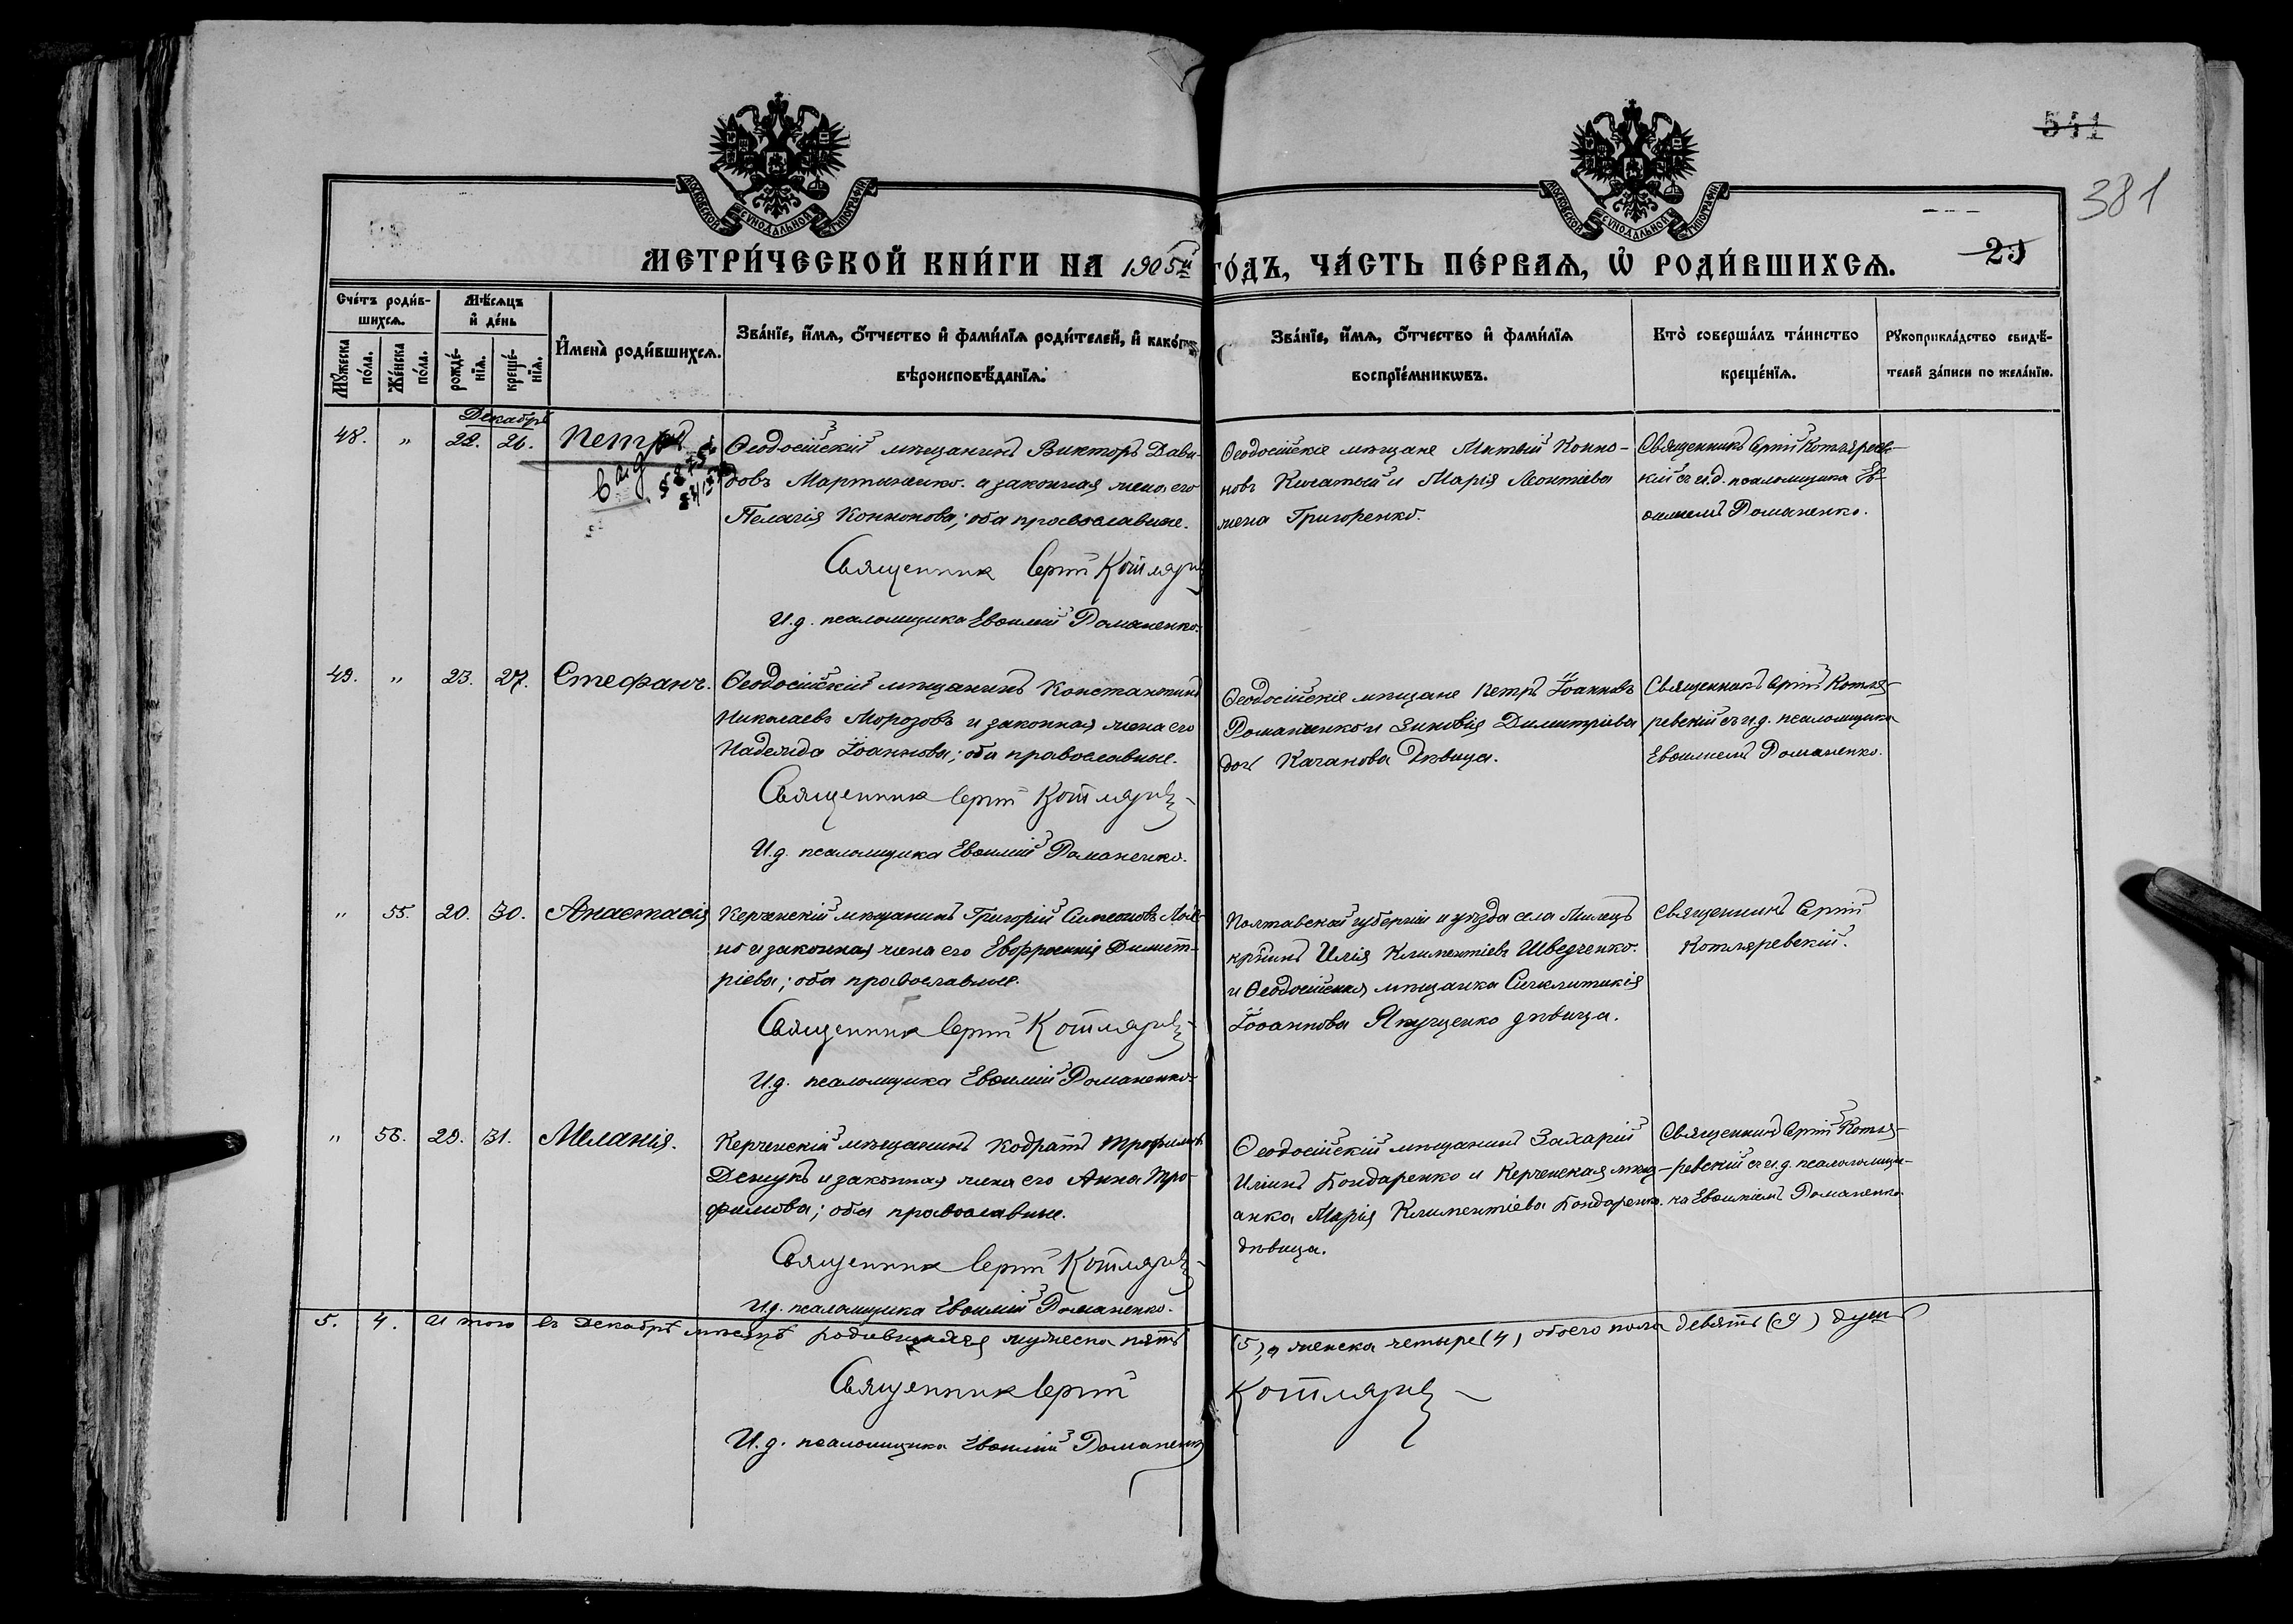 541
381
МОСКОВСКОЙ СѴНОДАЛЬНОЙ ТИПОГРАФІИ
МОСКОВСКОЙ СѴНОДАЛЬНОЙ ТИПОГРАФІИ
МЕТРИ́ЧЕСКОЙ КНИ́ГИ НА 1905й ГО́ДЪ, ЧА́СТЬ ПЕ́РВАѦ, Ѡ҆ РОДИ́ВШИХСѦ.
Сче́тъ роди́в-
шихсѧ.
Мѹ́жеска по́ла.
Же́нска по́ла.
Мѣ́сѧцъ
и҆ де́нь
рожде́-
нїѧ.
креще́-
нїѧ.
И҆мена̀ роди́вшихсѧ.
Зва́нїе, и҆́мѧ, ѻ҆́тчество и҆ фами́лїѧ роди́телей, и҆ како́гѡ
вѣроисповѣ́данїѧ.
Зва́нїе, и҆́мѧ, ѻ҆́тчество и҆ фами́лїѧ
воспрїе́мникѡвъ.
Кто̀ соверша́лъ та́инство
креще́нїѧ.
Рѹкоприкла́дство свидѣ́-
телей за́писи по жела́нїю.
Декабрь
48. " 22. 26. Петръ
Ѳеодосійскій мѣщанинъ Викторъ Дави-
довъ Мартиненко и законная жена его
Пелагія Кононова; оба православные.
Священник Сергій Котляр
И.д. псаломщика Евѳимій Романенко.
Ѳеодосійскіе мѣщане Конно-
новъ и Марія Леонтіева
жена Григоренко.
Священникъ Сергій Котляревс-
кій съ и.д. псаломщика Ев-
ѳиміемъ Романенко.
49. " 23. 27. Стефанъ.
Ѳеодосійскій мѣщанинъ Константинъ
Николаевъ Морозовъ и законная жена его
Надежда Іоаннова; оба православные.
Священник Сергій Котляр
И.д. псаломщика Евѳимій Романенко.
Ѳеодосійскіе мѣщане Петръ Іоанновъ
Романенко и Зиновія Димитріева
дочь Каганова дѣвица.
Священникъ Сергій Котля-
ревскій съ и.д. псаломщика
Евѳиміемъ Романенко.
" 55. 20. 30. Анастасія
Керченскій мѣщанинъ Григорій Симеоновъ
но и законная жена его Евфросинія Димит-
ріева; оба православные.
Священник Сергій Котляр
И.д. псаломщика Евѳимій Романенко.
Полтавской губерніи и уѣзда села
кр҃нинъ Илія Климентіевъ Шведченко
и Ѳеодосійская мѣщанка Синклитикія
Іоаннова дѣвица.
Священникъ Сергій
Котляревскій.
" 56. 29. 31. Меланія.
Керченскій мѣщанинъ Кодратъ Трофимовъ
и законная жена его Анна Тро-
фимова; оба православные.
Священник Сергій Котляр
И.д. псаломщика Евѳимій Романенко.
Ѳеодосійскій мѣщанинъ Захарій
Илиинъ Бондаренко и Керченская мѣщ-
анка Марія Климентіева Бондаренко
дѣвица.
Священникъ Сергій Котля-
ревскій съ и.д. псаломщи-
ка Евѳиміемъ Романенко
5. 4. Итого въ Декабрѣ мѣсяцѣ родившихся мужеска пять (5), а женска четыре (4) обоего пола девять (9) душъ
Священник Сергій Котляр
И.д. псаломщика Евѳимій Романенко